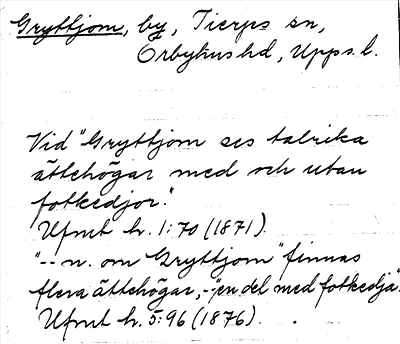 Gryttjom, by, Tierps sn,
Örbyhus hd, Upps. l.
Vid "Gryttjom ses talrika
ättehögar med och utan
fotkedjor."
Ufmt h. 1:70 (1871).
"-- n. om Gryttjom" finnas
flera ättehögar, -"en del med fotkedja".
Ufmt h. 5:96 (1876).